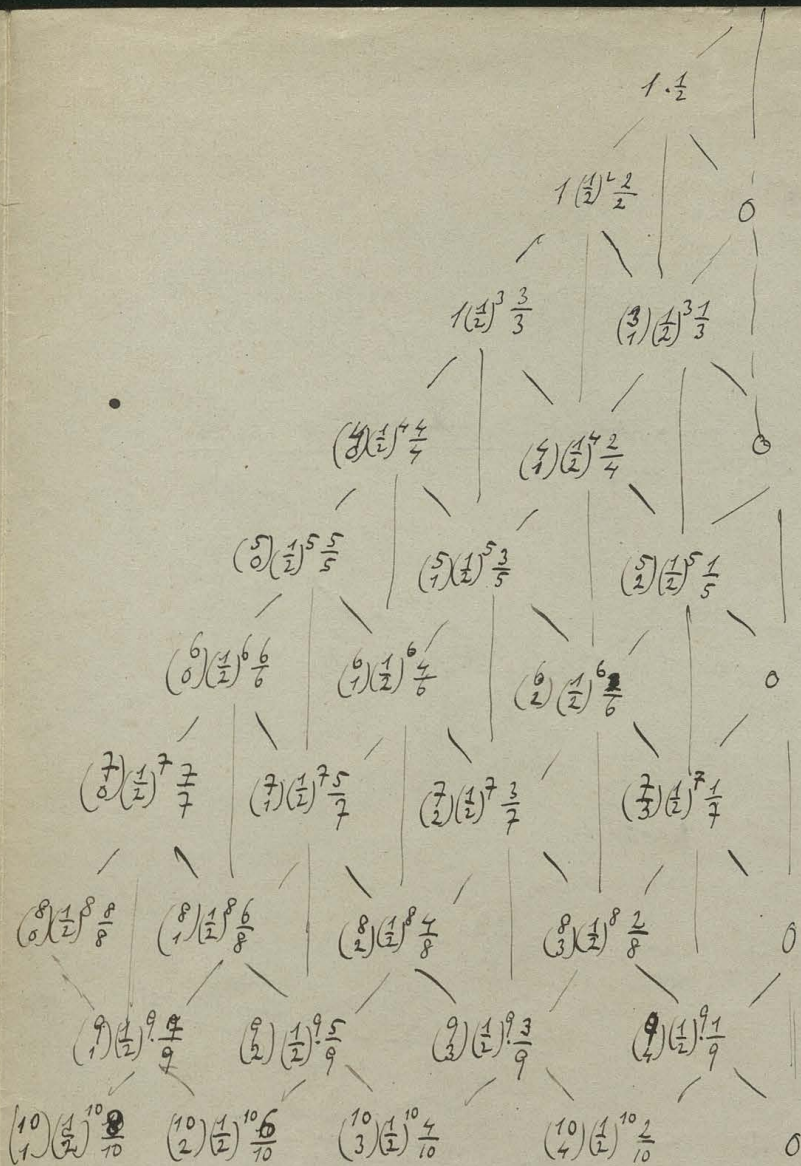 1·1/2
1(1/2)² 2/2 0
1(1/2)³ 3/3 (3 1)(1/2)³ 1/3
(4 0)(1/2)⁴ 4/4 (4 1)(1/2)⁴ 2/4 0
(5 0)(1/2)⁵ 5/5 (5 1)(1/2)⁵ 3/5 (5 2)(1/2)⁵ 1/5
(6 0)(1/2)⁶ 6/6 (6 1)(1/2)⁶ 4/6 (6 2)(1/2)⁶ 2/6 0
(7 0)(1/2)⁷ 7/7 (7 1)(1/2)⁷ 5/7 (7 2)(1/2)⁷ 3/7 (7 3)(1/2)⁷ 1/7
(8 0)(1/2)⁸ 8/8 (8 1)(1/2)⁸ 6/8 (8 2)(1/2)⁸ 4/8 (8 3)(1/2)⁸ 2/8 0
(9 1)(1/2)⁹·7/9 (9 2)(1/2)⁹·5/9 (9 3)(1/2)⁹·3/9 (9 4)(1/2)⁹·1/9
(10 1)(1/2)¹⁰ 8/10 (10 2)(1/2)¹⁰ 6/10 (10 3)(1/2)¹⁰ 4/10 (10 4)(1/2)¹⁰ 2/10 0